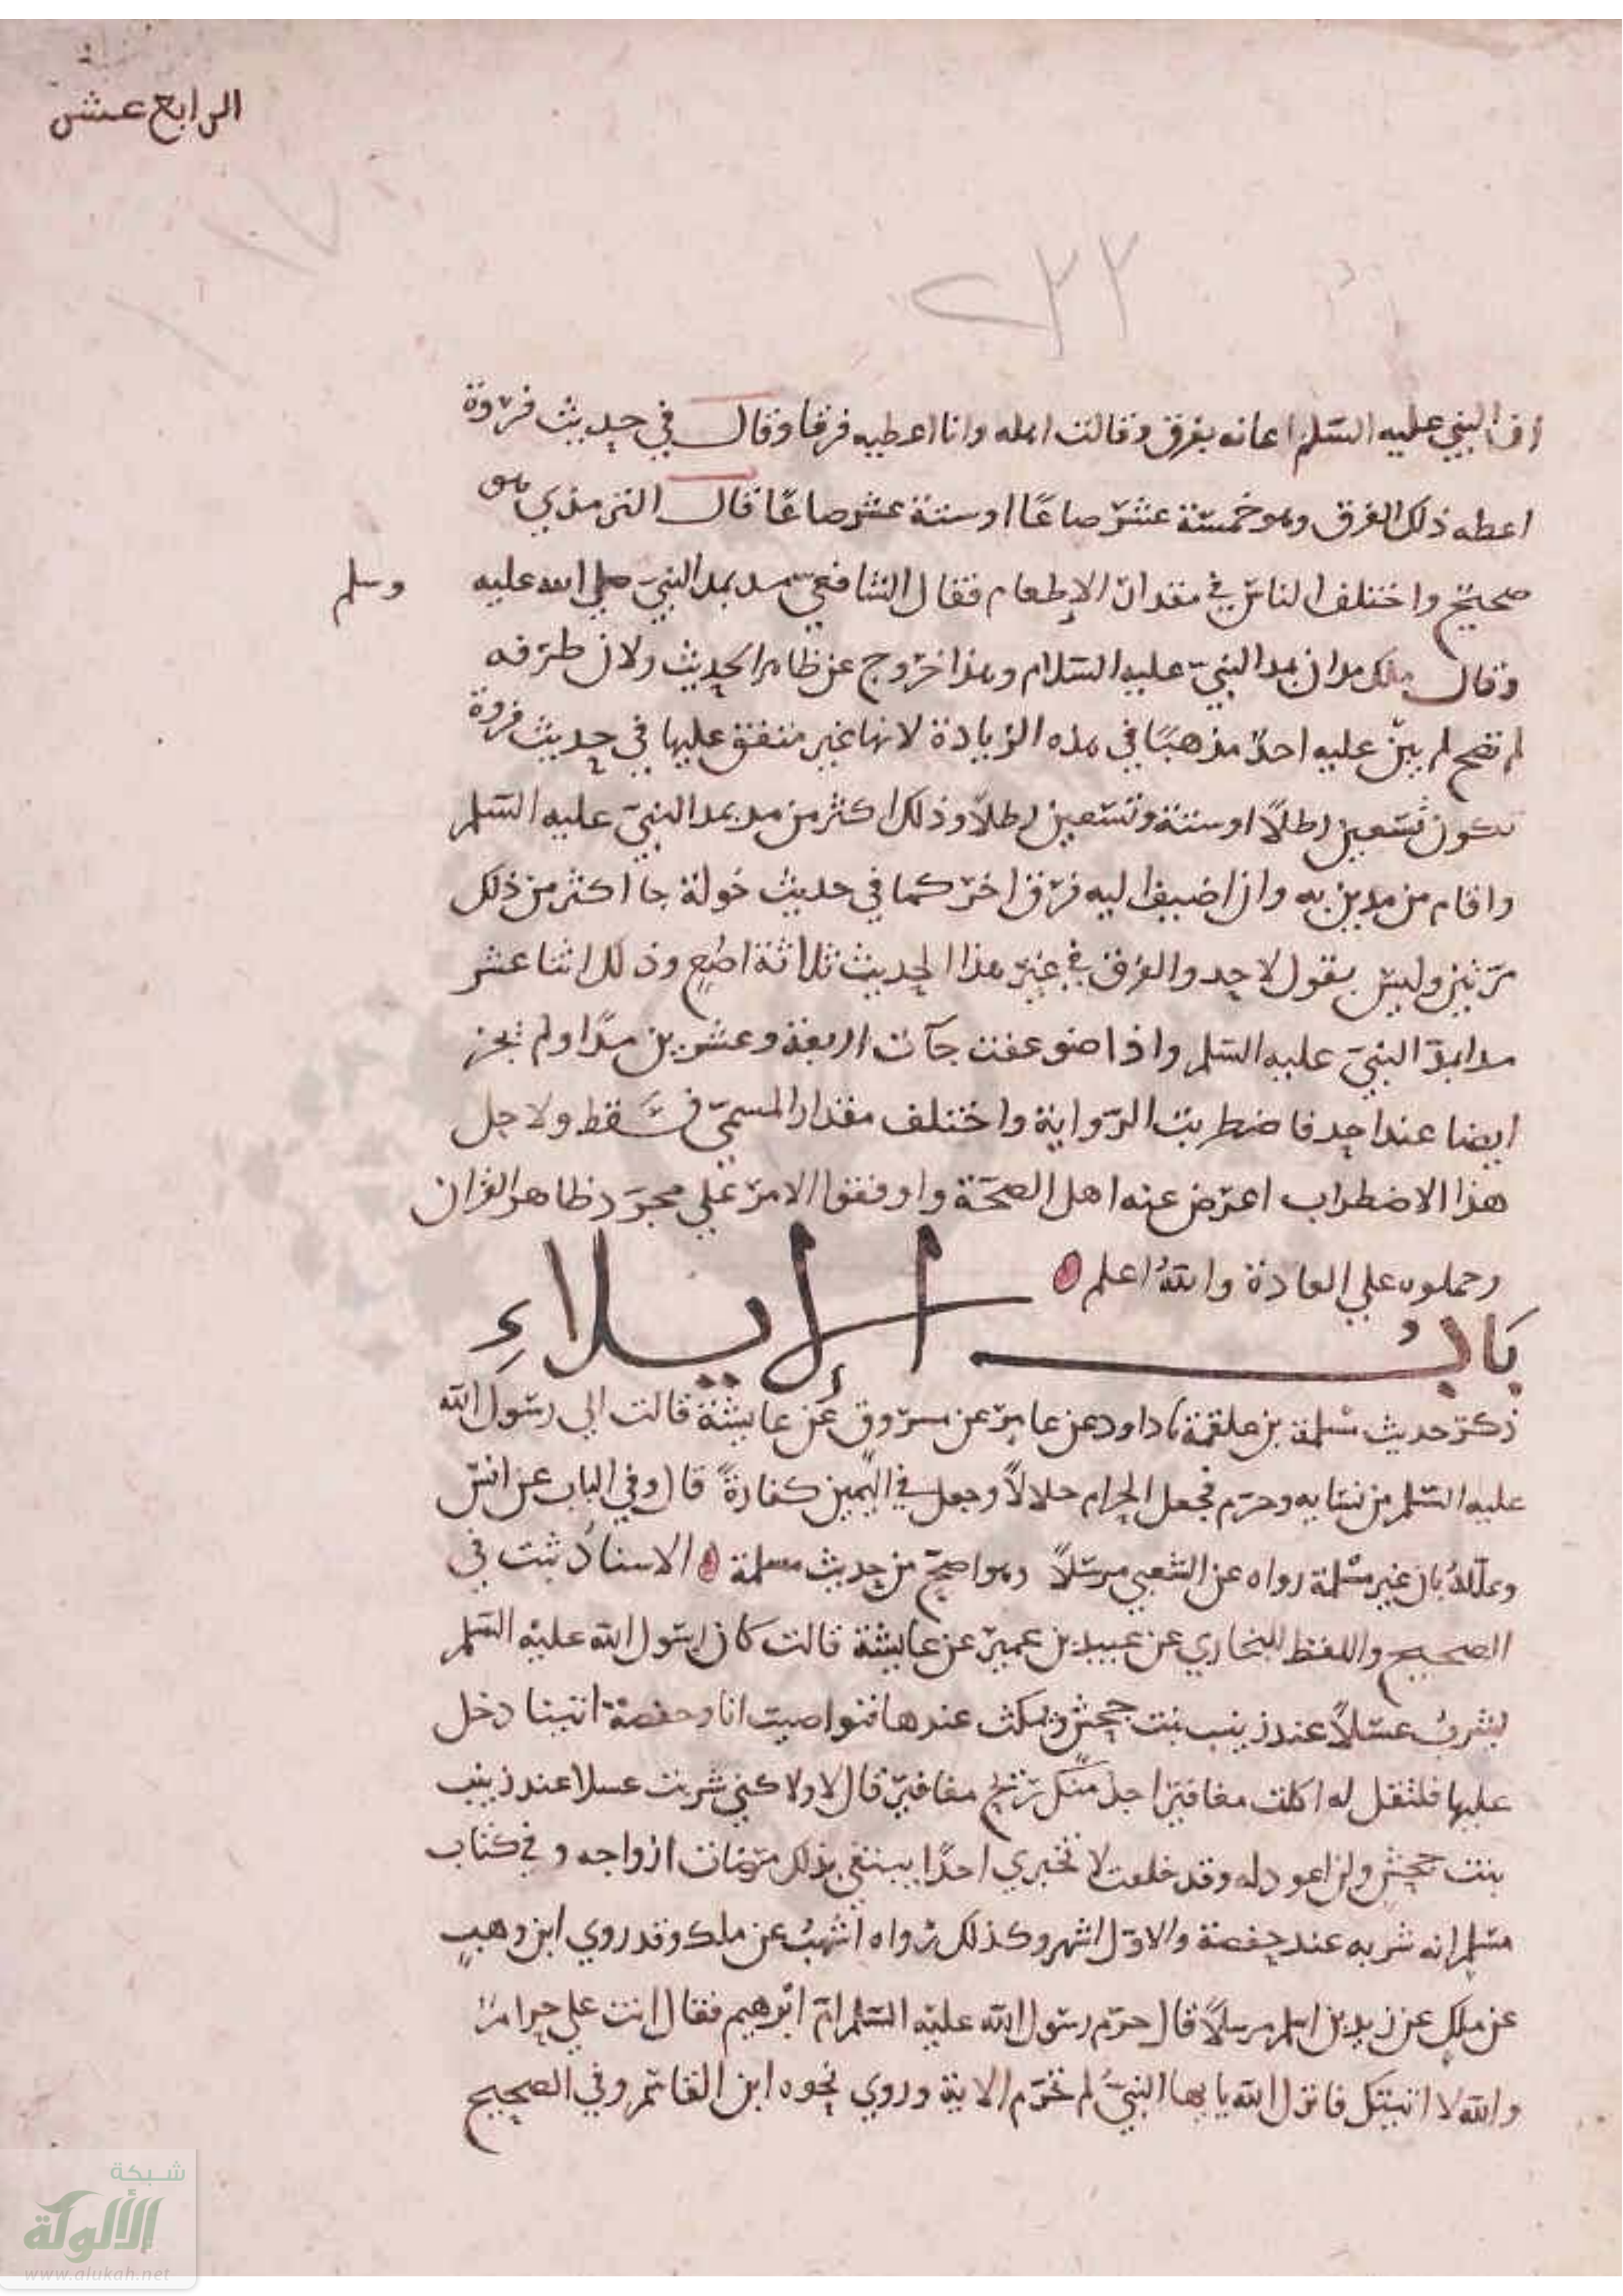 الرابع عشر
٢٣٢
ان النبي عليه السلم اعانه بفرق وقالت امله وانا اعطيه فرقا وقال في حديث فروة
اعطه ذلك الفرق وهو خمسة عشر صاعا او ستة عشر صاعا قال الترمذي هو
صحيح واختلف الناس في مقدار الإطعام فقال الشافعي مد بمد النبي صلى الله عليه وسلم
وقال ملك مدان بمد النبي عليه السلام وهذا خروج عن ظاهر الحديث ولان طرقه
لم تصح لم يبن عليه احد مذهبا في هذه الزيادة لانها غير متفق عليها في حديث فروة
تكون تسعين رطلا او ستة وتسعين رطلا وذلك اكثر من مد بمد النبي عليه السلم
واقام من مدين به وان اضيف اليه فرق اخر كما في حديث خولة جا اكثر من ذلك
مرتين وليس بقول لاحد والفرق في غير هذا الحديث ثلاثة اصع وذلك اثنا عشر
مدا بمد النبي عليه السلم واذا ضوعفت جآت اربعة وعشرين مدا ولم يجز
ايضا عند احد فاضطربت الرواية واختلف مقدار المسمى فسقط ولاجل
هذا الاضطراب اعرض عنه اهل الصحة واوقفوا الامر على مجرد ظاهر القران
وحملوه علي العادة والله اعلم
باب الإيلاء
ذكر حديث مسلمة بن علقمة نا داود عن عامر عن مسروق عن عايشة قالت الي رسول الله
عليه السلم من نسايه وحرم فجعل الحرام حلالا وجعل في اليمين كفارة قال وفي الباب عن انس
وعلله بان غير مسلمة رواه عن الشعبي مرسلا وهو اصح من حديث مسلمة الاسناد ثبت في
الصحيح واللفظ للبخاري عن عبيد بن عمير عن عايشة قالت كان رسول الله عليه السلم
يشرب عسلا عند زينب بنت جحش ويمكث عندها فتواصيت انا وحفصة ايتنا دخل
عليها فلتقل له اكلت مغافير اجد منك ريح مغافير قال لا ولاكني شربت عسلا عند زينب
بنت جحش ولن اعود له وقد حلفت لا تخبري احدا يبتغي بذلك مرضات ازواجه وفي كتاب
مسلم انه شربه عند حفصة والاول اشهر وكذلك رواه اشهب عن ملك وقد روي ابن وهب
عن ملك عن زيد بن اسلم مرسلا قال حرم رسول الله عليه السلم ام ابرهيم فقال انت علي حرام
والله لا اتيتك فانزل الله يايها النبي لم تحرم الاية وروي نحوه ابن القاسم وفي الصحيح
شبكة
الألوكة
www.alukah.net